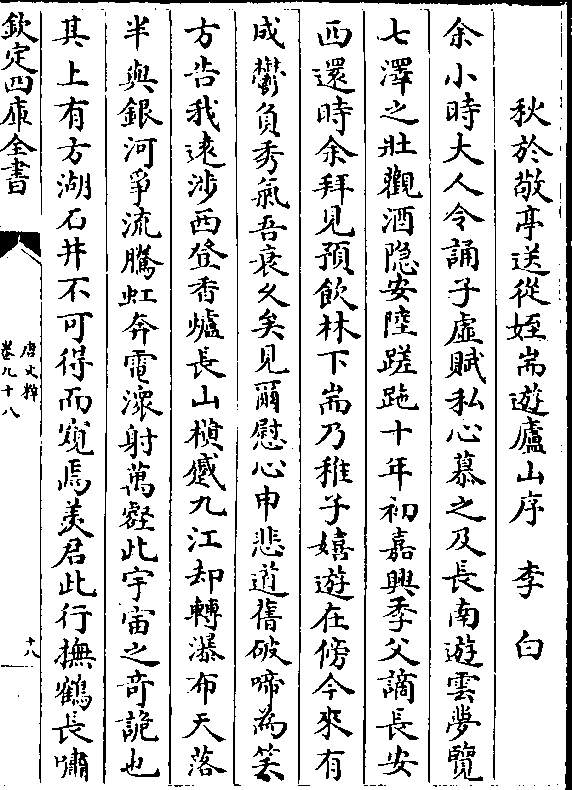 秋於敬亭送從姪耑遊廬山序　李白
余小時大人令誦子虛賦私心慕之及長南遊雲夢覽
七澤之壯觀酒隐安陸蹉跎十年初嘉興季父謫長安
西還時余拜見預飲林下耑乃稚子嬉遊在傍今來有
成鬱負秀氣吾衰久矣見爾慰心申悲道舊破啼為笑
方告我遠涉西登香爐長山橫蹙九江却轉瀑布天落
半與銀河爭流騰虹奔電潨射萬壑此宇宙之奇詭也
其上有方湖石井不可得而窺焉羡君此行撫鶴長嘯
欽定四庫全書
唐文粹
卷九十八
十八